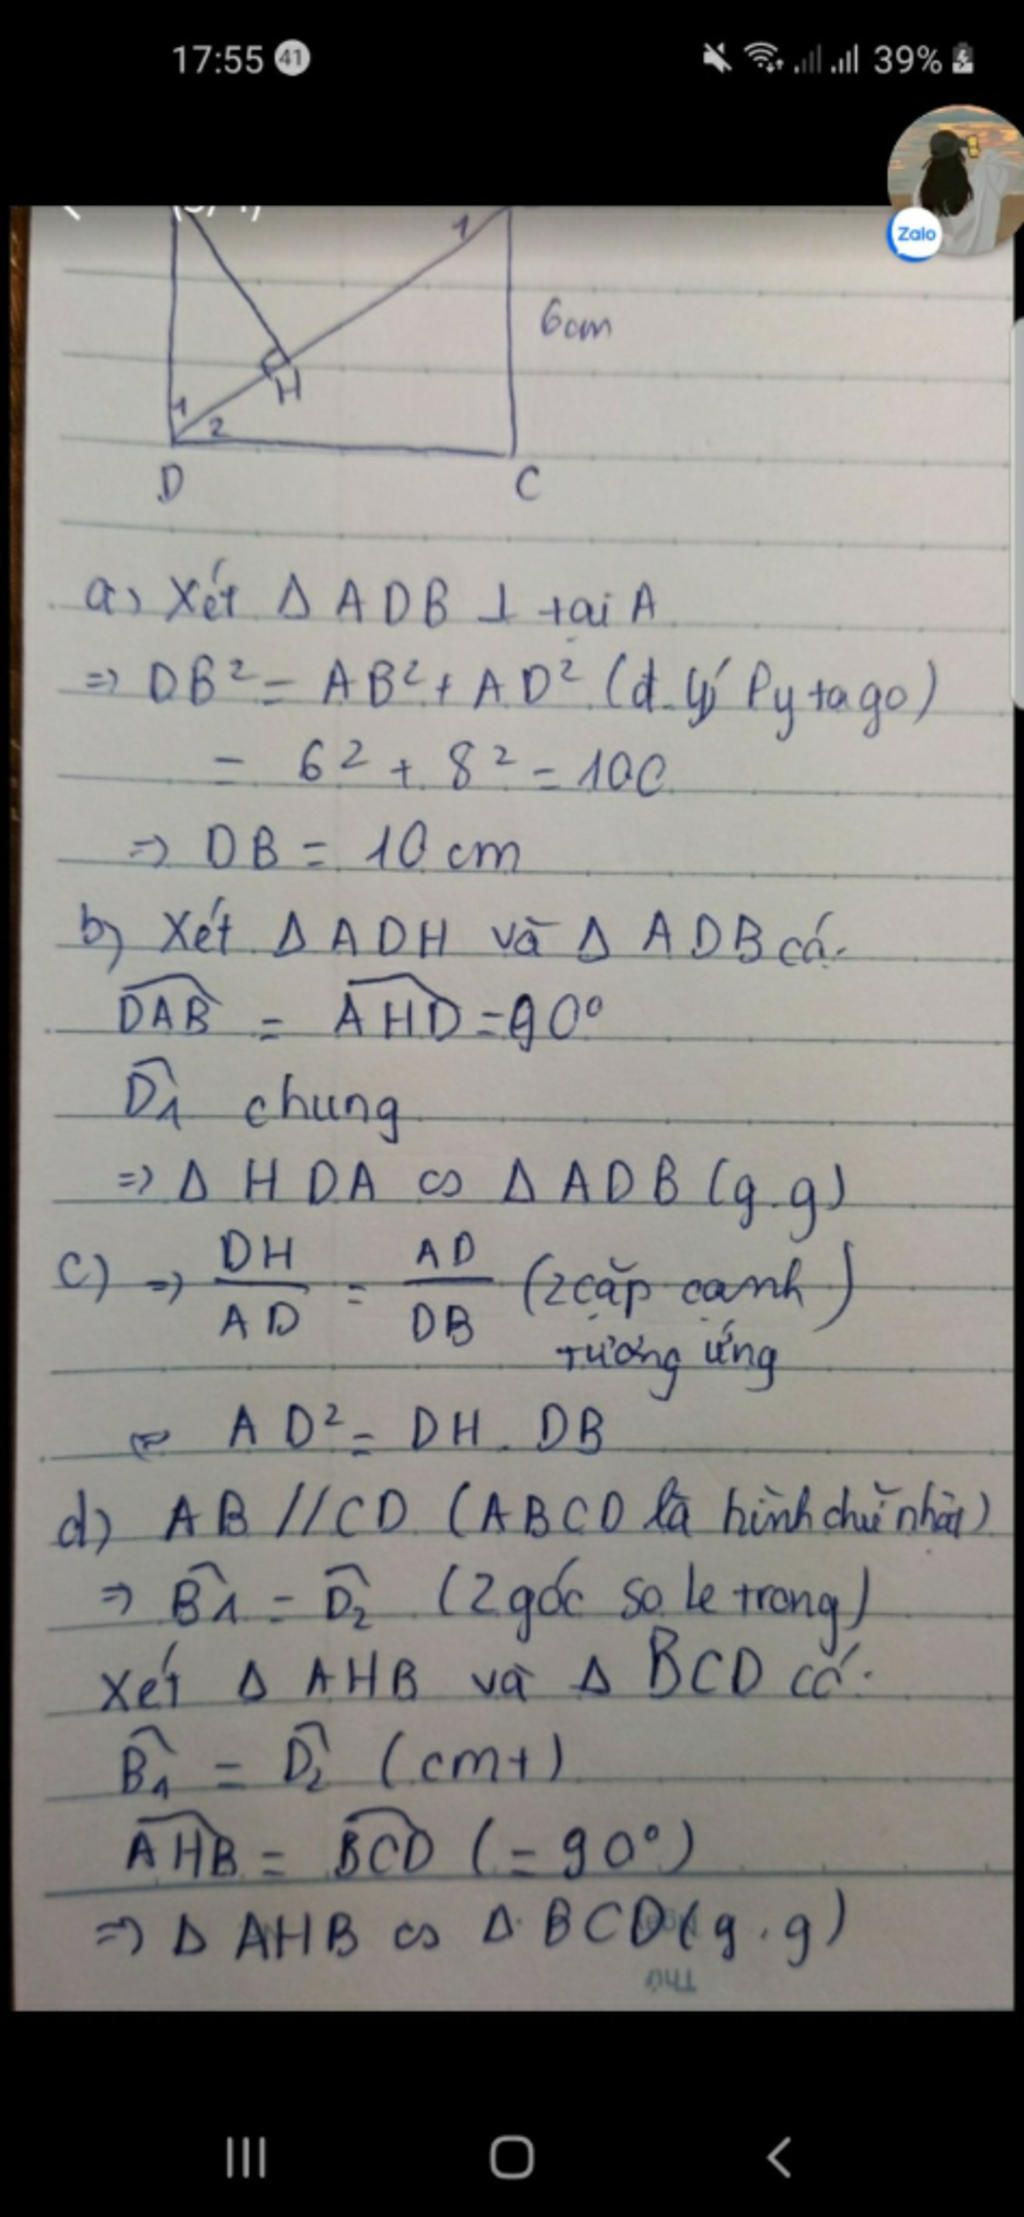 17:55 41 39%
Zalo
1
6cm
H
1 2
D C
a) Xét Δ ADB ⊥ tại A
=> DB² = AB² + AD² (đ. lý Pytago)
= 6² + 8² = 100
=> DB = 10 cm
b) Xét Δ ADH và Δ ADB có:
DAB̂ = AHD̂ = 90°
D̂₁ chung
=> Δ HDA ∽ Δ ADB (g.g)
c) => DH/AD = AD/DB (2 cặp cạnh
tương ứng)
AD² = DH . DB
d) AB // CD (ABCD là hình chữ nhật)
=> B̂₁ = D̂₂ (2 góc so le trong)
Xét Δ AHB và Δ BCD có:
B̂₁ = D̂₂ (cmt)
AHB̂ = BCD̂ (= 90°)
=> Δ AHB ∽ Δ BCD (g.g)
Thứ